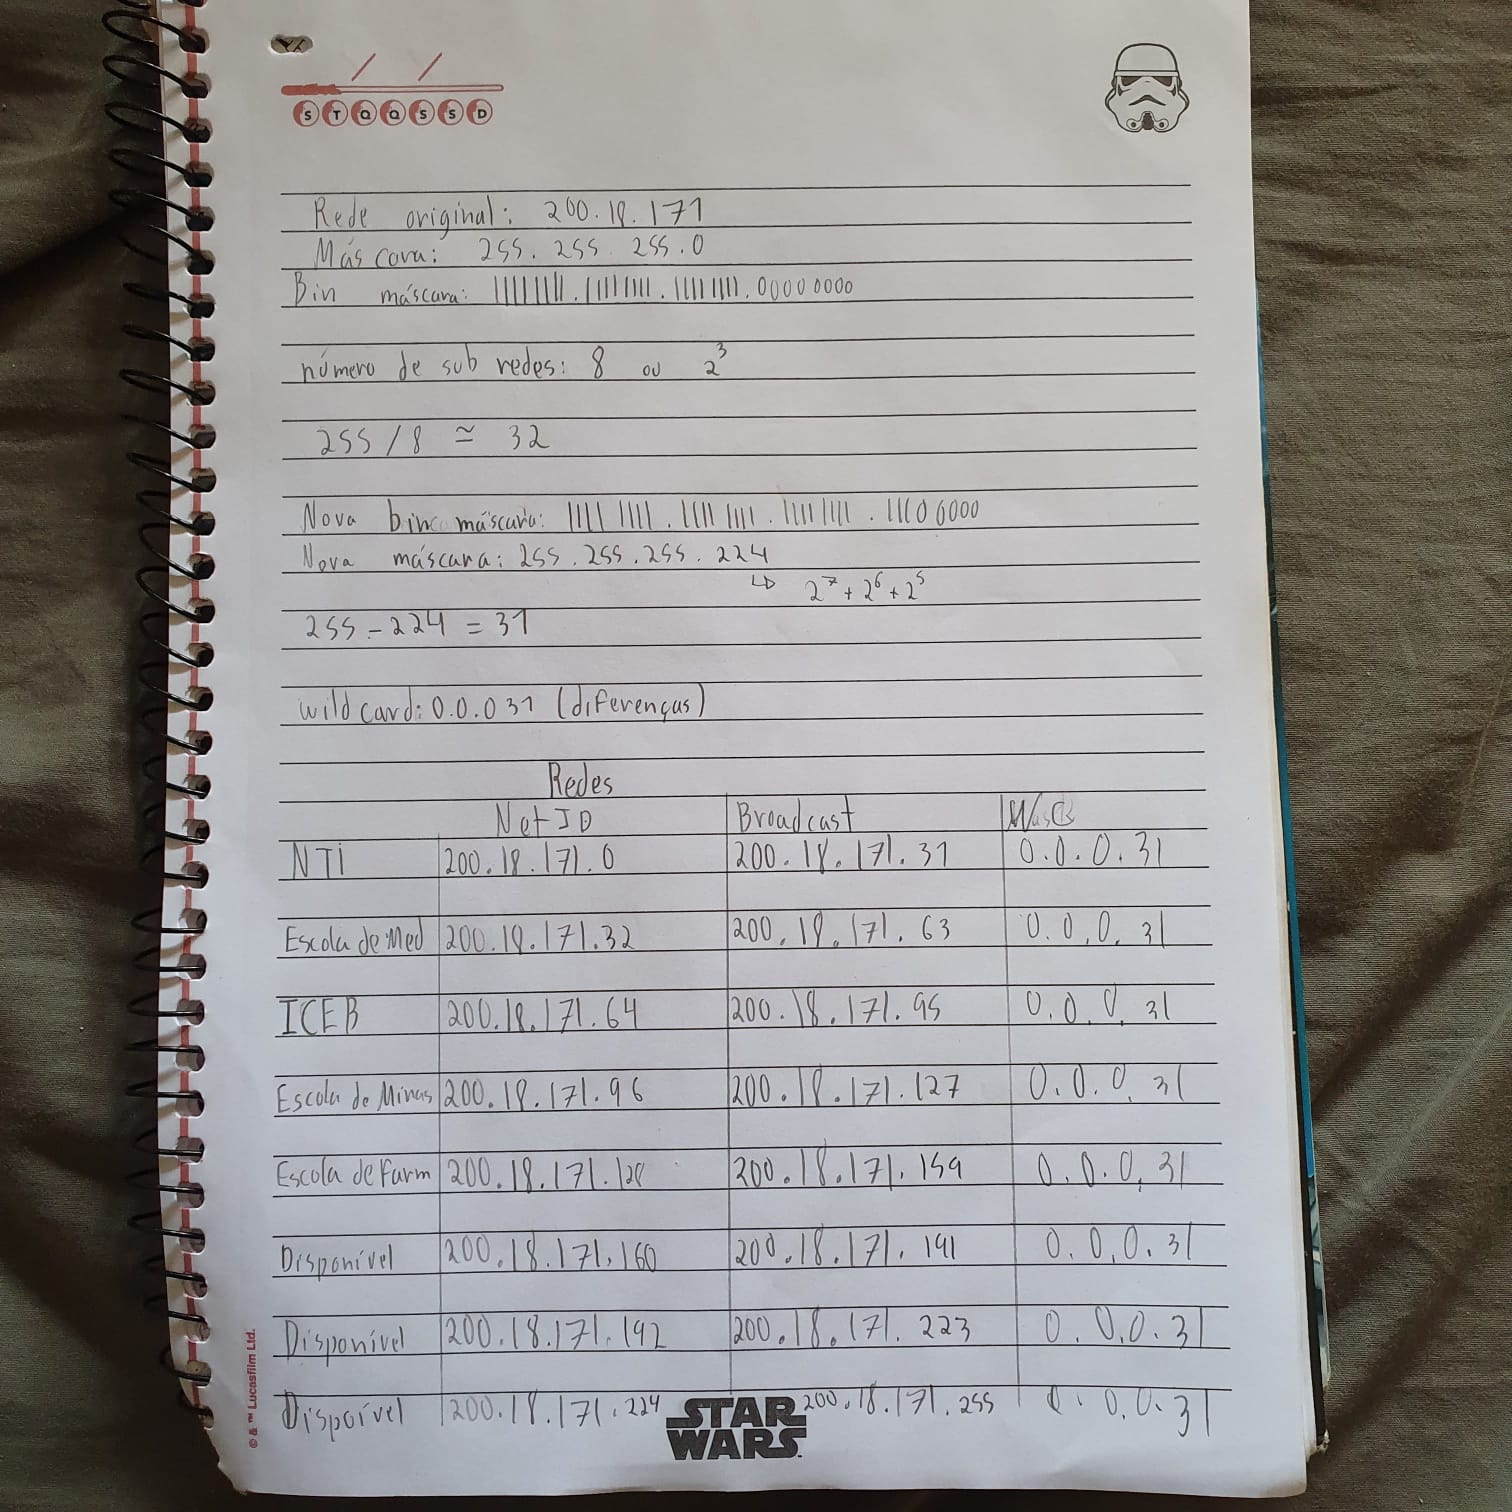 S T Q Q S S D
Rede original: 200.18.171
Máscara: 255.255.255.0
Bin máscara: 11111111.11111111.11111111.00000000
número de sub redes: 8 ou 2³
255/8 ≃ 32
Nova binc máscara: 11111111.11111111.11111111.11100000
Nova máscara: 255.255.255.224
↳ 2⁷+2⁶+2⁵
255-224=31
wild card: 0.0.0 31 (diferenças)
Redes
Net ID Broadcast Mask
NTI 200.18.171.0 200.18.171.31 0.0.0.31
Escola de Med 200.18.171.32 200.18.171.63 0.0.0.31
ICEB 200.18.171.64 200.18.171.95 0.0.0.31
Escola de Minas 200.18.171.96 200.18.171.127 0.0.0.31
Escola de Farm 200.18.171.128 200.18.171.159 0.0.0.31
Disponível 200.18.171.160 200.18.171.191 0.0.0.31
Disponível 200.18.171.192 200.18.171.223 0.0.0.31
Dispoível 200.18.171.224 200.18.171.255 0.0.0.31
STAR
WARS
© & ™ Lucasfilm Ltd.